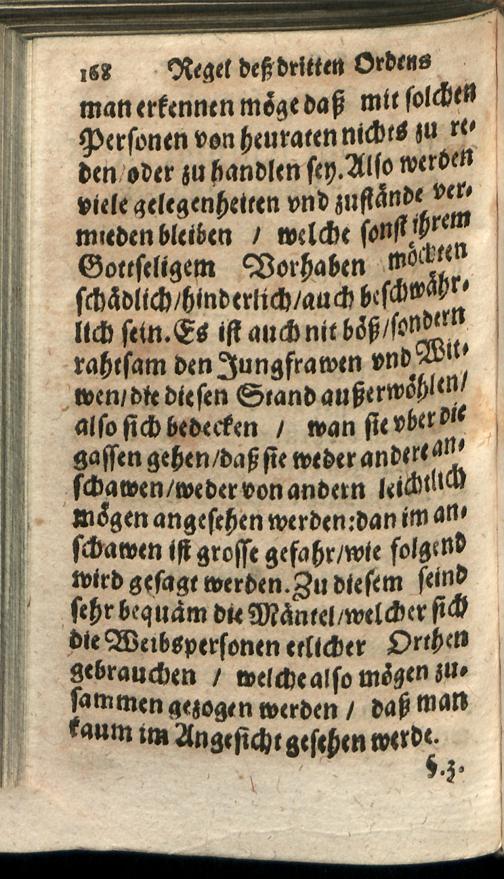 168 Regel deß dritten Ordens
man erkennen möge daß mit solchen
Personen von heuraten nichts zu re-
den/oder zu handlen sey. Also werden
viele gelegenheiten vnd zustände ver-
mieden bleiben / welche sonst ihrem
Gottseligem Vorhaben möchten
schädlich/hinderlich/auch beschwähr-
lich sein. Es ist auch nit böß/sondern
rahtsam den Jungfrawen vnd Wit-
wen/die diesen Stand außerwöhlen/
also sich bedecken / wan sie vber die
gassen gehen/daß sie weder andere an-
schawen/weder von andern leichtlich
mögen angesehen werden:dan im an-
schawen ist grosse gefahr/wie folgend
wird gesagt werden. Zu diesem seind
sehr bequäm die Mäntel/welcher sich
die Weibspersonen etlicher Orthen
gebrauchen / welche also mögen zu-
sammen gezogen werden / daß man
kaum im Angesicht gesehen werde.
§.3.